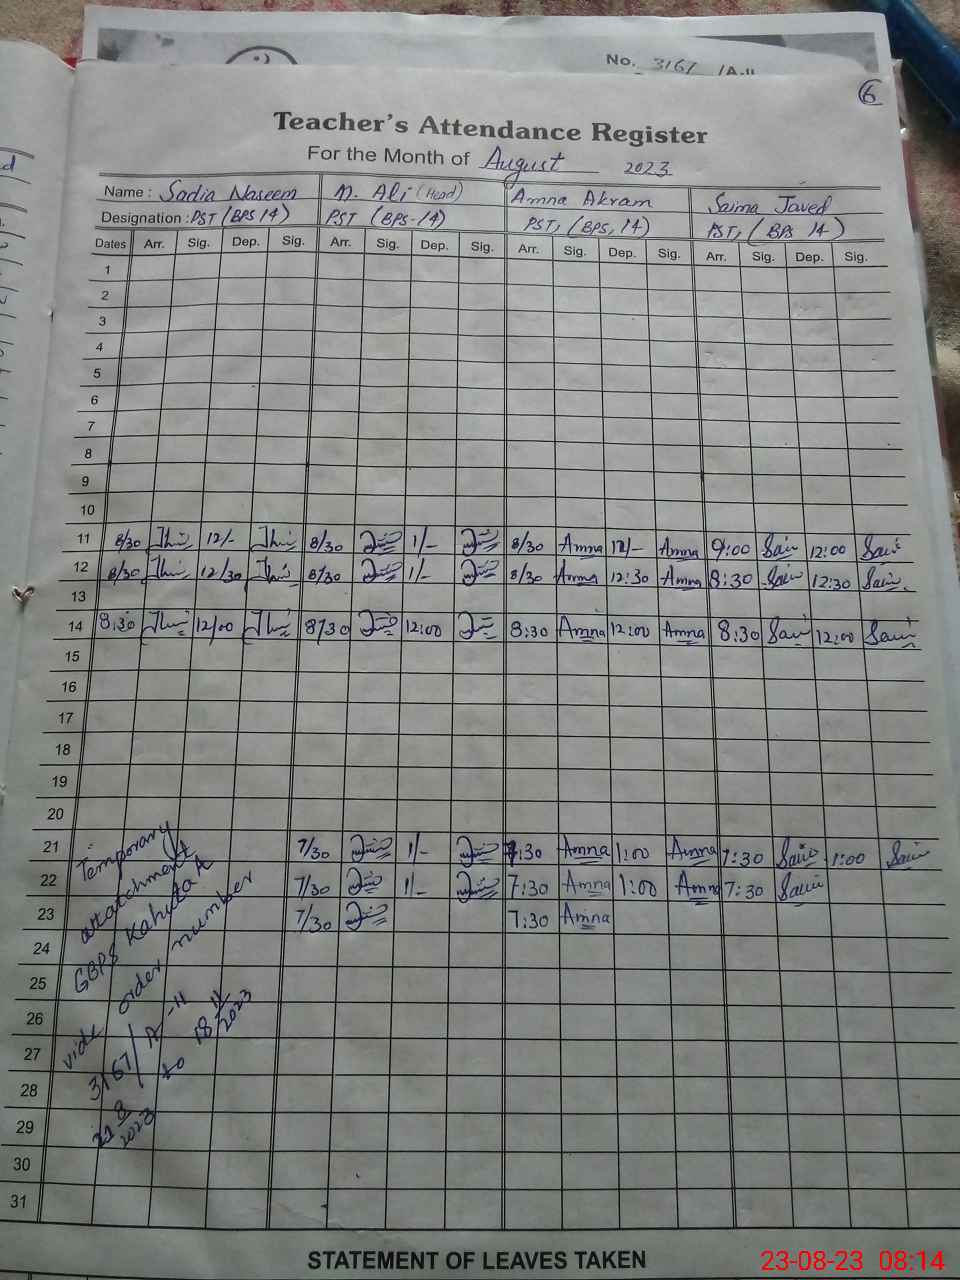 No. 3167 /A-II
6
Teacher's Attendance Register
For the Month of August 2023
Name : Sadia Naseem M. Ali (Head) Amna Akram Saima Javed
Designation : PST (BPS 14) PST (BPS-14) PST, (BPS, 14) PST, (BPS 14)
Dates Arr. Sig. Dep. Sig. Arr. Sig. Dep. Sig. Arr. Sig. Dep. Sig. Arr. Sig. Dep. Sig.
1
2
3
4
5
6
7
8
9
10
11 8/30 12/- 8/30 1/- 8/30 Amna 12/- Amna 9:00 12:00
12 8/30 12/30 8/30 1/- 8/30 Amna 12:30 Amna 8:30 12:30
13
14 8:30 12/00 8/30 12:00 8:30 Amna 12:00 Amna 8:30 12:00
15
16
17
18
19
20
21 7/30 1/- 7:30 Amna 1:00 Amna 7:30 1:00
22 7/30 1/- 7:30 Amna 1:00 Amna 7:30
23 7/30 7:30 Amna
24
25
26
27
28
29
30
31
Temporary
attatchment
GBPS Kahuta A
vide order number
3167/A-11
21 8 2023 to 18 11 2023
STATEMENT OF LEAVES TAKEN
23-08-23 08:14